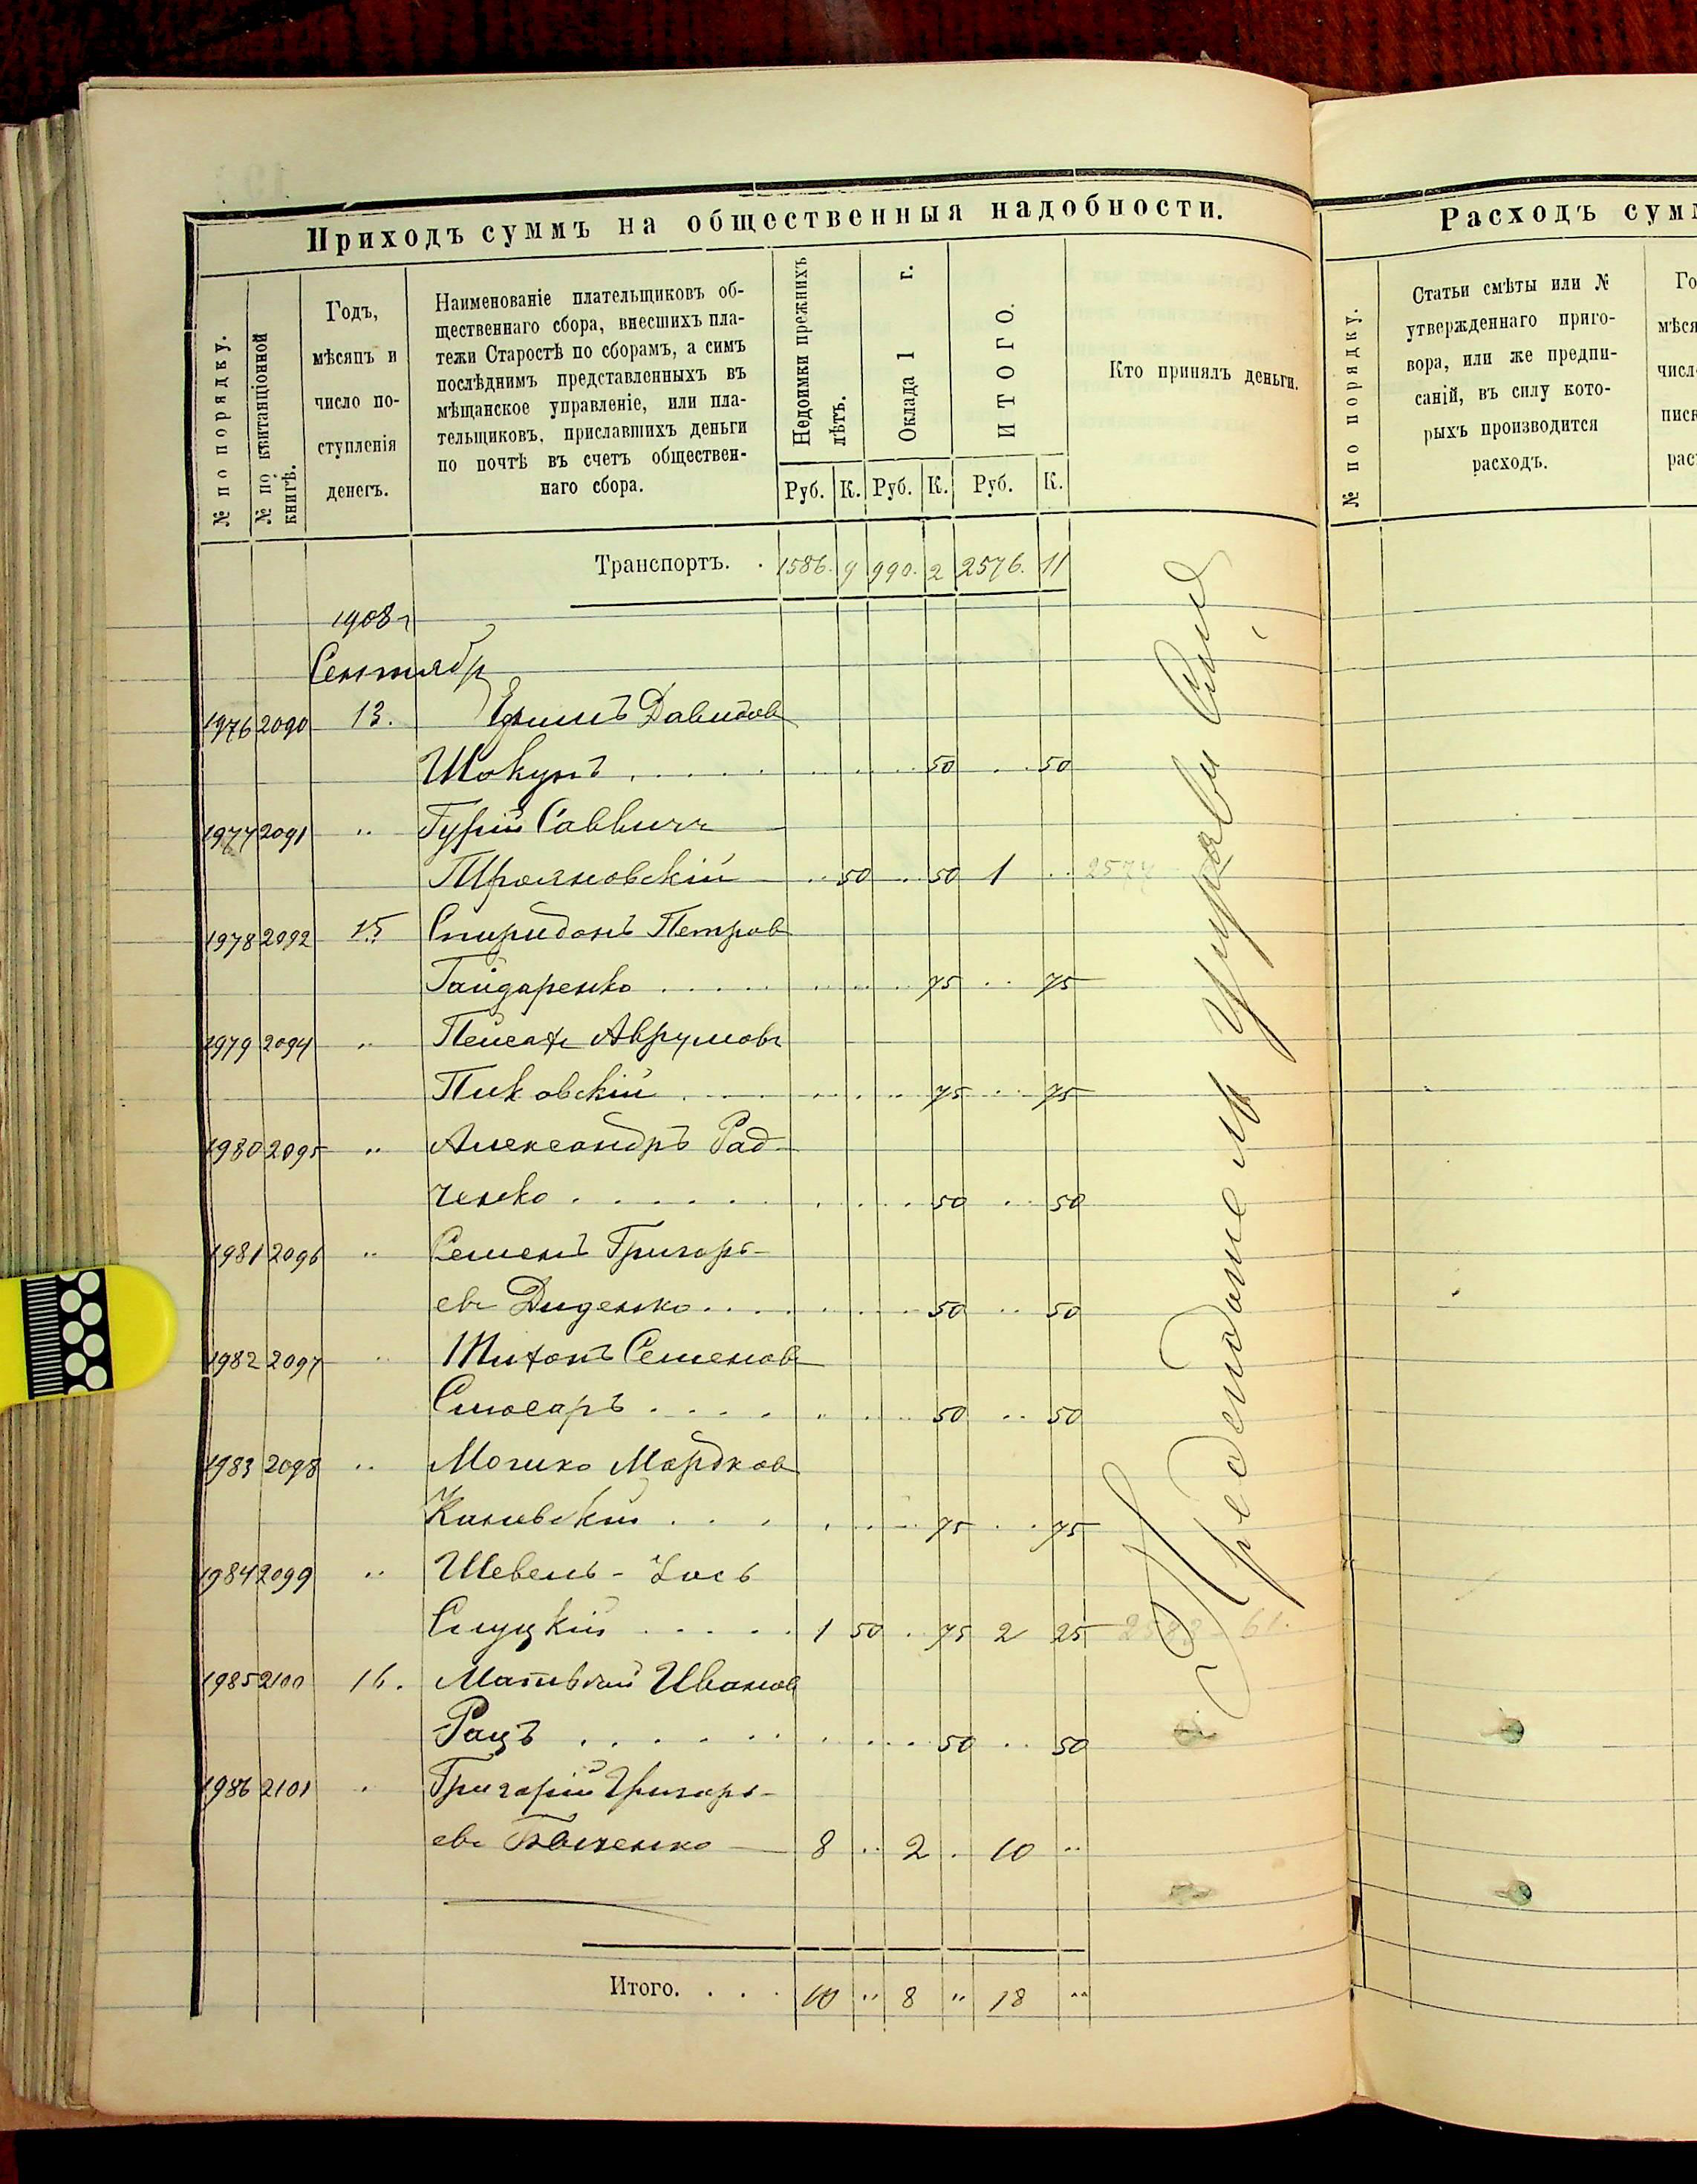 Приходъ суммъ на общественныя надобности.
№ по порядку.
№ по квитанціонной книгѣ.
Годъ,
мѣсяцъ и
число по-
ступленія
денегъ.
Наименованіе плательщиковъ об-
щественнаго сбора, внесшихъ пла-
тежи Старостѣ по сборамъ, а симъ
послѣднимъ представленныхъ въ
мѣщанское управленіе, или пла-
тельщиковъ, приславшихъ деньги
по почтѣ въ счетъ обществен-
наго сбора.
Недоимки прежнихъ
лѣтъ.
Оклада 1 г.
ИТОГО.
Руб. К. Руб. К. Руб. К.
Кто принялъ деньги.
Транспортъ. . 1586. 9 990. 2 2576. 11
1908 г
Сентябр
1976 2090 13. Ефимъ Давидов
Шокунъ . . . . . 50 .. 50
1977 2091 " Гурій Саввичъ
Трояновскій .. 50 . 50 1 .. 2577
1978 2092 15 Спиридонъ Петров
Гайдаренко . . . . . 75 .. 75
1979 2094 " Пейсах Аврумовъ
Пиковскій . . . 75 .. 75
1980 2095 " Александръ Рад-
ченко . . . . . . 50 .. 50
1981 2096 " Семенъ Григорь-
евъ Диденко . . . . 50 .. 50
1982 2097 " Тихонъ Семенов
Слюсарь . . . . 50 .. 50
1983 2098 " Мошко Мордков
Каневскій . . . 75 .. 75
1984 2099 " Шевель-Зось
Слуцкій . . . . . 1 50 . 75 2 25 2583 61.
1985 2100 16. Матвѣй Иванов
Рацъ . . . . . . 50 .. 50
1986 2101 " Григорій Григорь-
евъ 8 .. 2 . 10 ..
Итого. . . . 10 " 8 " 18 "
Расходъ сумм
№ по порядку.
Статьи смѣты или №
утвержденнаго приго-
вора, или же предпи-
саній, въ силу кото-
рыхъ производится
расходъ.
Го
мѣся
числ
писк
рас